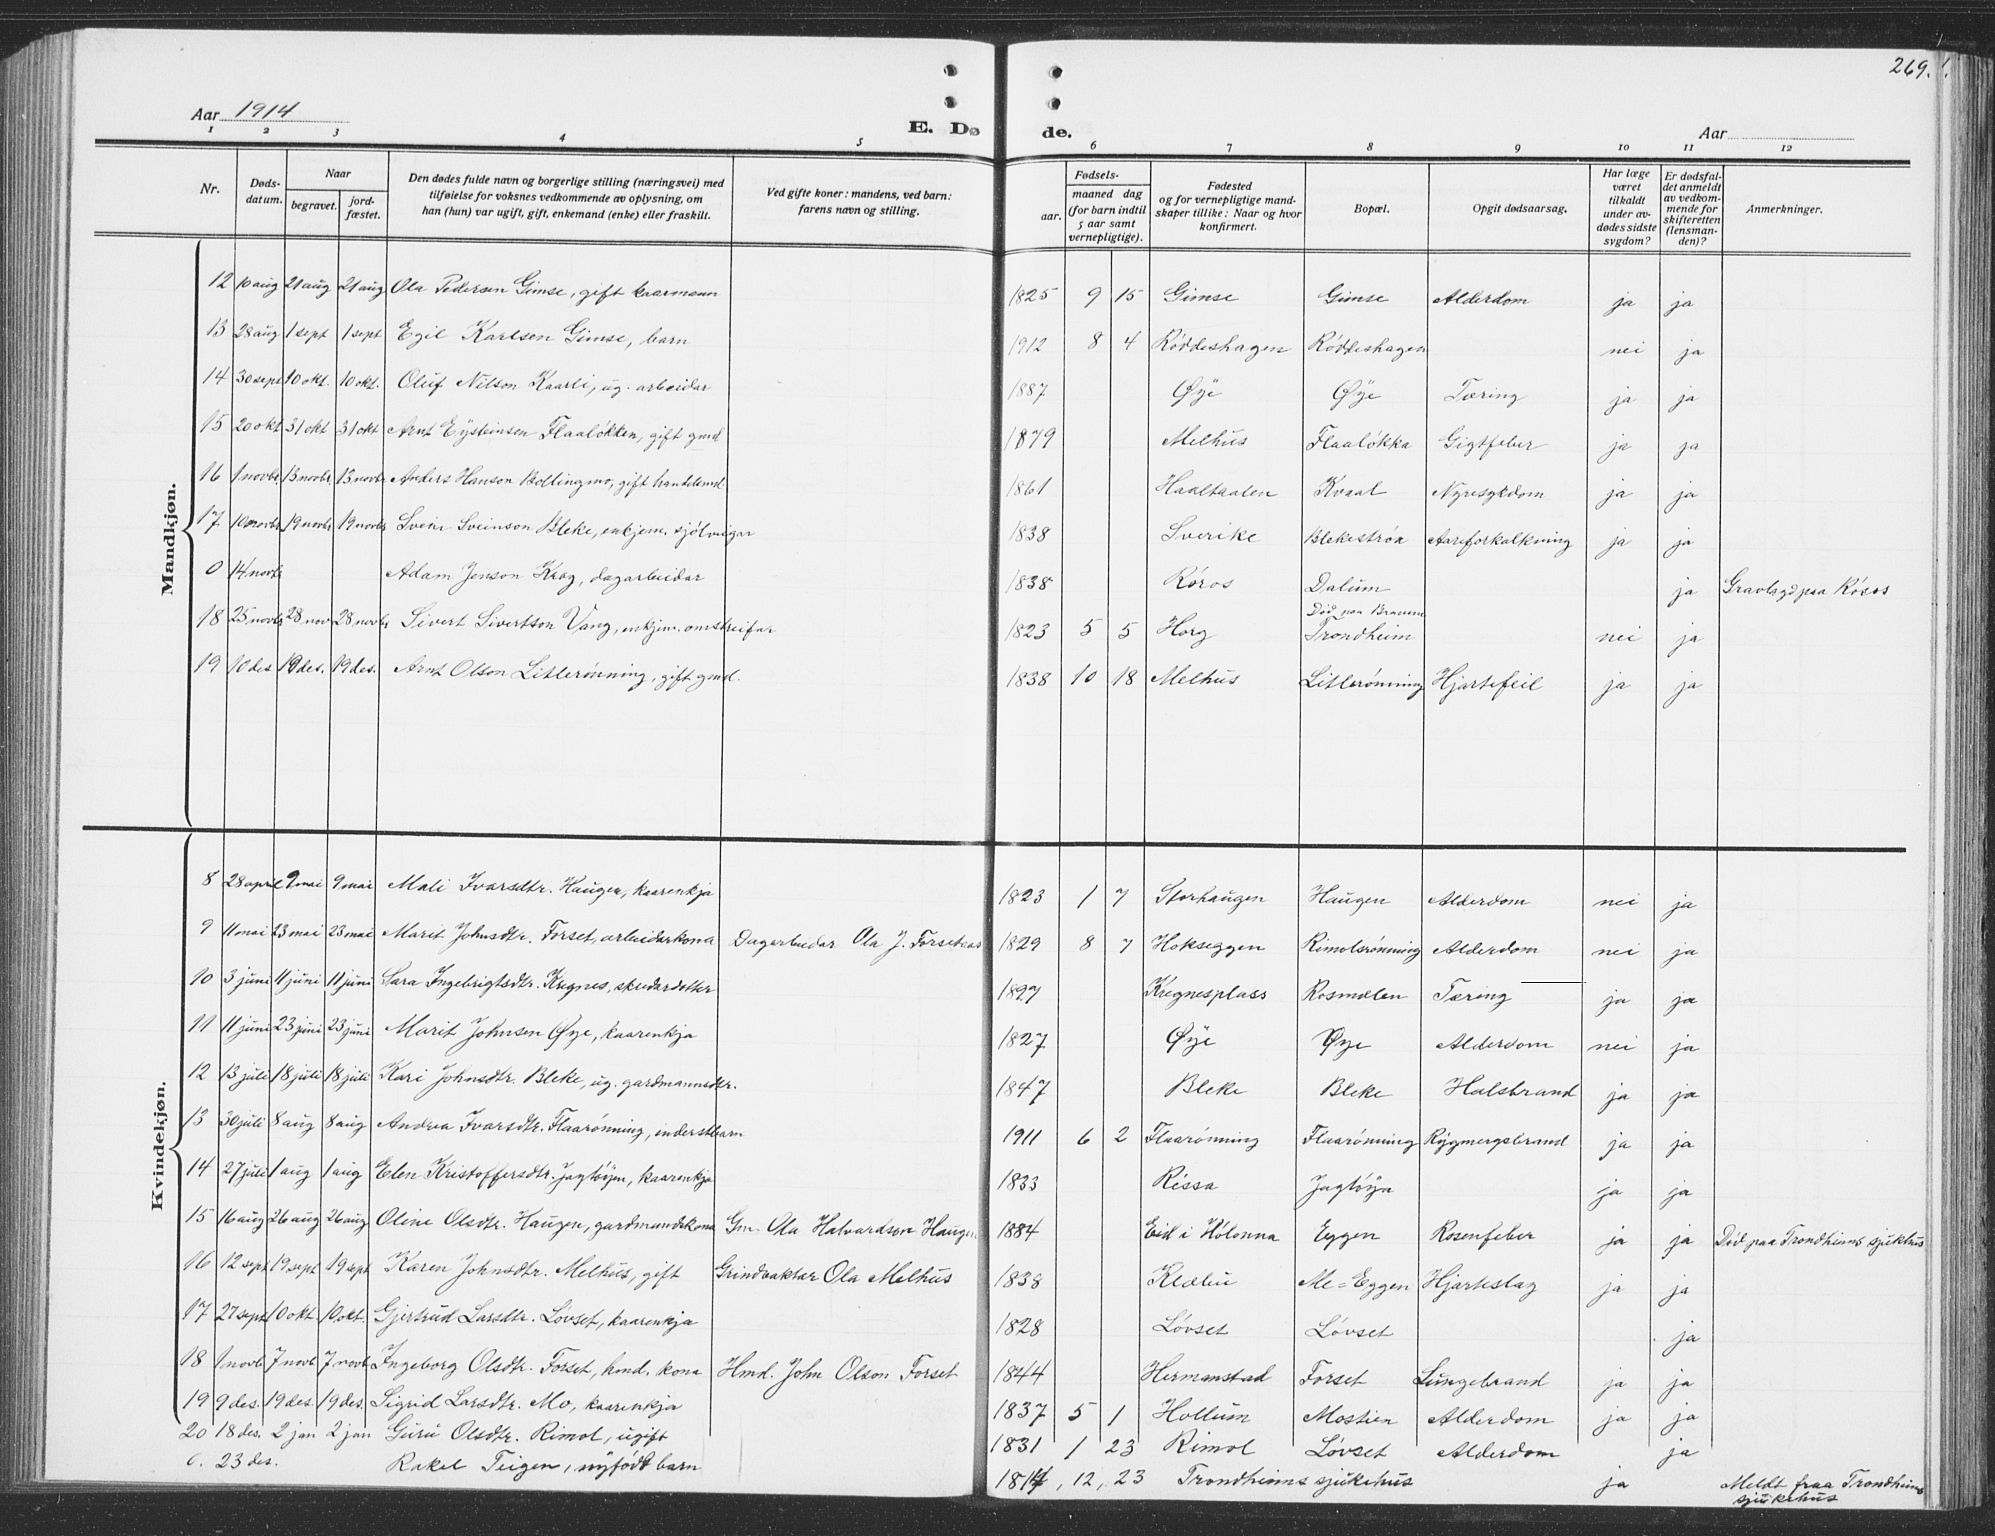 269.
Aar 1914
E. Dø de.
Aar
1 2 3 4 5 6 7 8 9 10 11 12
Nr.
Døds-
datum.
Naar
begravet.
jord-
fæstet.
Den dødes fulde navn og borgerlige stilling (næringsvei) med
tilføielse for voksnes vedkommende av oplysning, om
han (hun) var ugift, gift, enkemand (enke) eller fraskilt.
Ved gifte koner: mandens, ved barn:
farens navn og stilling.
Fødsels-
aar.
maaned dag
(for barn indtil
5 aar samt
vernepligtige).
Fødested
og for vernepligtige mand-
skaper tillike: Naar og hvor
konfirmert.
Bopæl.
Opgit dødsaarsag.
Har læge
været
tilkaldt
under av-
dødes sidste
sygdom?
Er dødsfal-
det anmeldt
av vedkom-
mende for
skifteretten
(lensman-
den)?
Anmerkninger.
Mandkjøn.
12 10 aug 21 aug 21 aug Ola Pedersen Gimse, gift kaarmann 1825 9 15 Gimse Gimse Alderdom ja ja
13 28 aug 1 sept 1 sept Egil Karlsen Gimse, barn 1912 8 4 Røddeshagen Røddeshagen nei ja
14 30 sept 10 okt. 10 okt. Oluf Nilson Kaarli, ug. arbeidar 1887 Øye Øye Tæring ja ja
15 20 okt 31 okt 31 okt Arnt Eysteinsen Flaaløkken, gift gmd 1879 Melhus Flaaløkka Gigtfeber ja ja
16 1 novbr. 13 novbr. 13 novbr Anders Hanson Bollingmo, gift handelsmd 1861 Haaltaalen Kvaal Nyresykdom ja ja
17 10 novbr 19 novbr 19 novbr Svein Sveinson Bleke, enkjem. sjølveigar 1838 Sverike Blekestrøa Aareforkalkning ja ja
0 14 novbr Adam Jenson Krog, dagarbeidar 1838 Røros Dalum ja Gravlagd paa Røros
18 25 novbr 28 nov 28 novbr Sivert Sivertson Vang, enkjem. omstreifar 1823 5 5 Horg Død paa Brauna
Trondheim nei ja
19 10 des 19 des. 19 des. Arnt Olson Litlerønning, gift gmd. 1838 10 18 Melhus Litlerønning Hjartefeil ja ja
Kvindekjøn.
8 28 april 9 mai 9 mai Mali Ivarsdtr. Haugen, kaarenkja 1823 1 7 Storhaugen Haugen Alderdom nei ja
9 11 mai 23 mai 23 mai Marit Johnsdtr. Forset, arbeidarkona Dagarbeidar Ola J. Forsetaas 1829 8 7 Hokseggen Rimolsrønning Alderdom nei ja
10 3 juni 11 juni 11 juni Sara Ingebrigtsdtr. Kregnes, skredardotter 1897 Kregnesplass Rosmælen Tæring ja ja
11 11 juni 23 juni 23 juni Marit Johnsen Øye, kaarenkja 1827 Øye Øye Alderdom nei ja
12 13 juli 18 juli 18 juli Kari Johnsdtr. Bleke, ug. gardmannsdtr. 1847 Bleke Bleke Halsbrand ja ja
13 30 juli 8 aug 8 aug Andrea Ivarsdtr. Flaarønning, inderstbarn 1911 6 2 Flaarønning Flaarønning Rygmergsbrand ja ja
14 27 juli 1 aug 1 aug Elen Kristoffersdtr. Jagtøyen, kaarenkja 1833 Rissa Jagtøya ja ja
15 16 aug 26 aug 26 aug Oline Olsdtr. Haugen, gardmandskona Gm. Ola Halvardson Haugen 1884 Eid i Hølonna Eggen Rosenfeber ja ja Død paa Trondheims sjukehus
16 12 sept 19 sept 19 sept Karen Johnsdtr. Melhus, gift Grindvaktar Ola Melhus 1838 Klæbu Me-Eggen Hjarteslag ja ja
17 27 sept 10 okt. 10 okt. Gjertrud Larsdtr. Løvset, kaarenkja 1828 Løvset Løvset ja
18 1 novb 7 novb 7 novb Ingeborg Olsdtr. Forset, hmd. kona Hmd. John Olson Forset 1844 Hermanstad Forset Lungebrand ja ja
19 9 des. 19 des 19 des. Sigrid Larsdtr. Mo, kaarenkja 1837 5 1 Hollum Mostien Alderdom ja ja
20 18 des. 2 jan 2 jan Guru Olsdtr. Rimol, ugift 1831 1 23 Rimol Løvset Alderdom ja
0. 23 des. Rakel Teigen, nyfødt barn 1814, 12, 23 Trondheims sjukehus ja Meldt fraa Trondheims
sjukehus